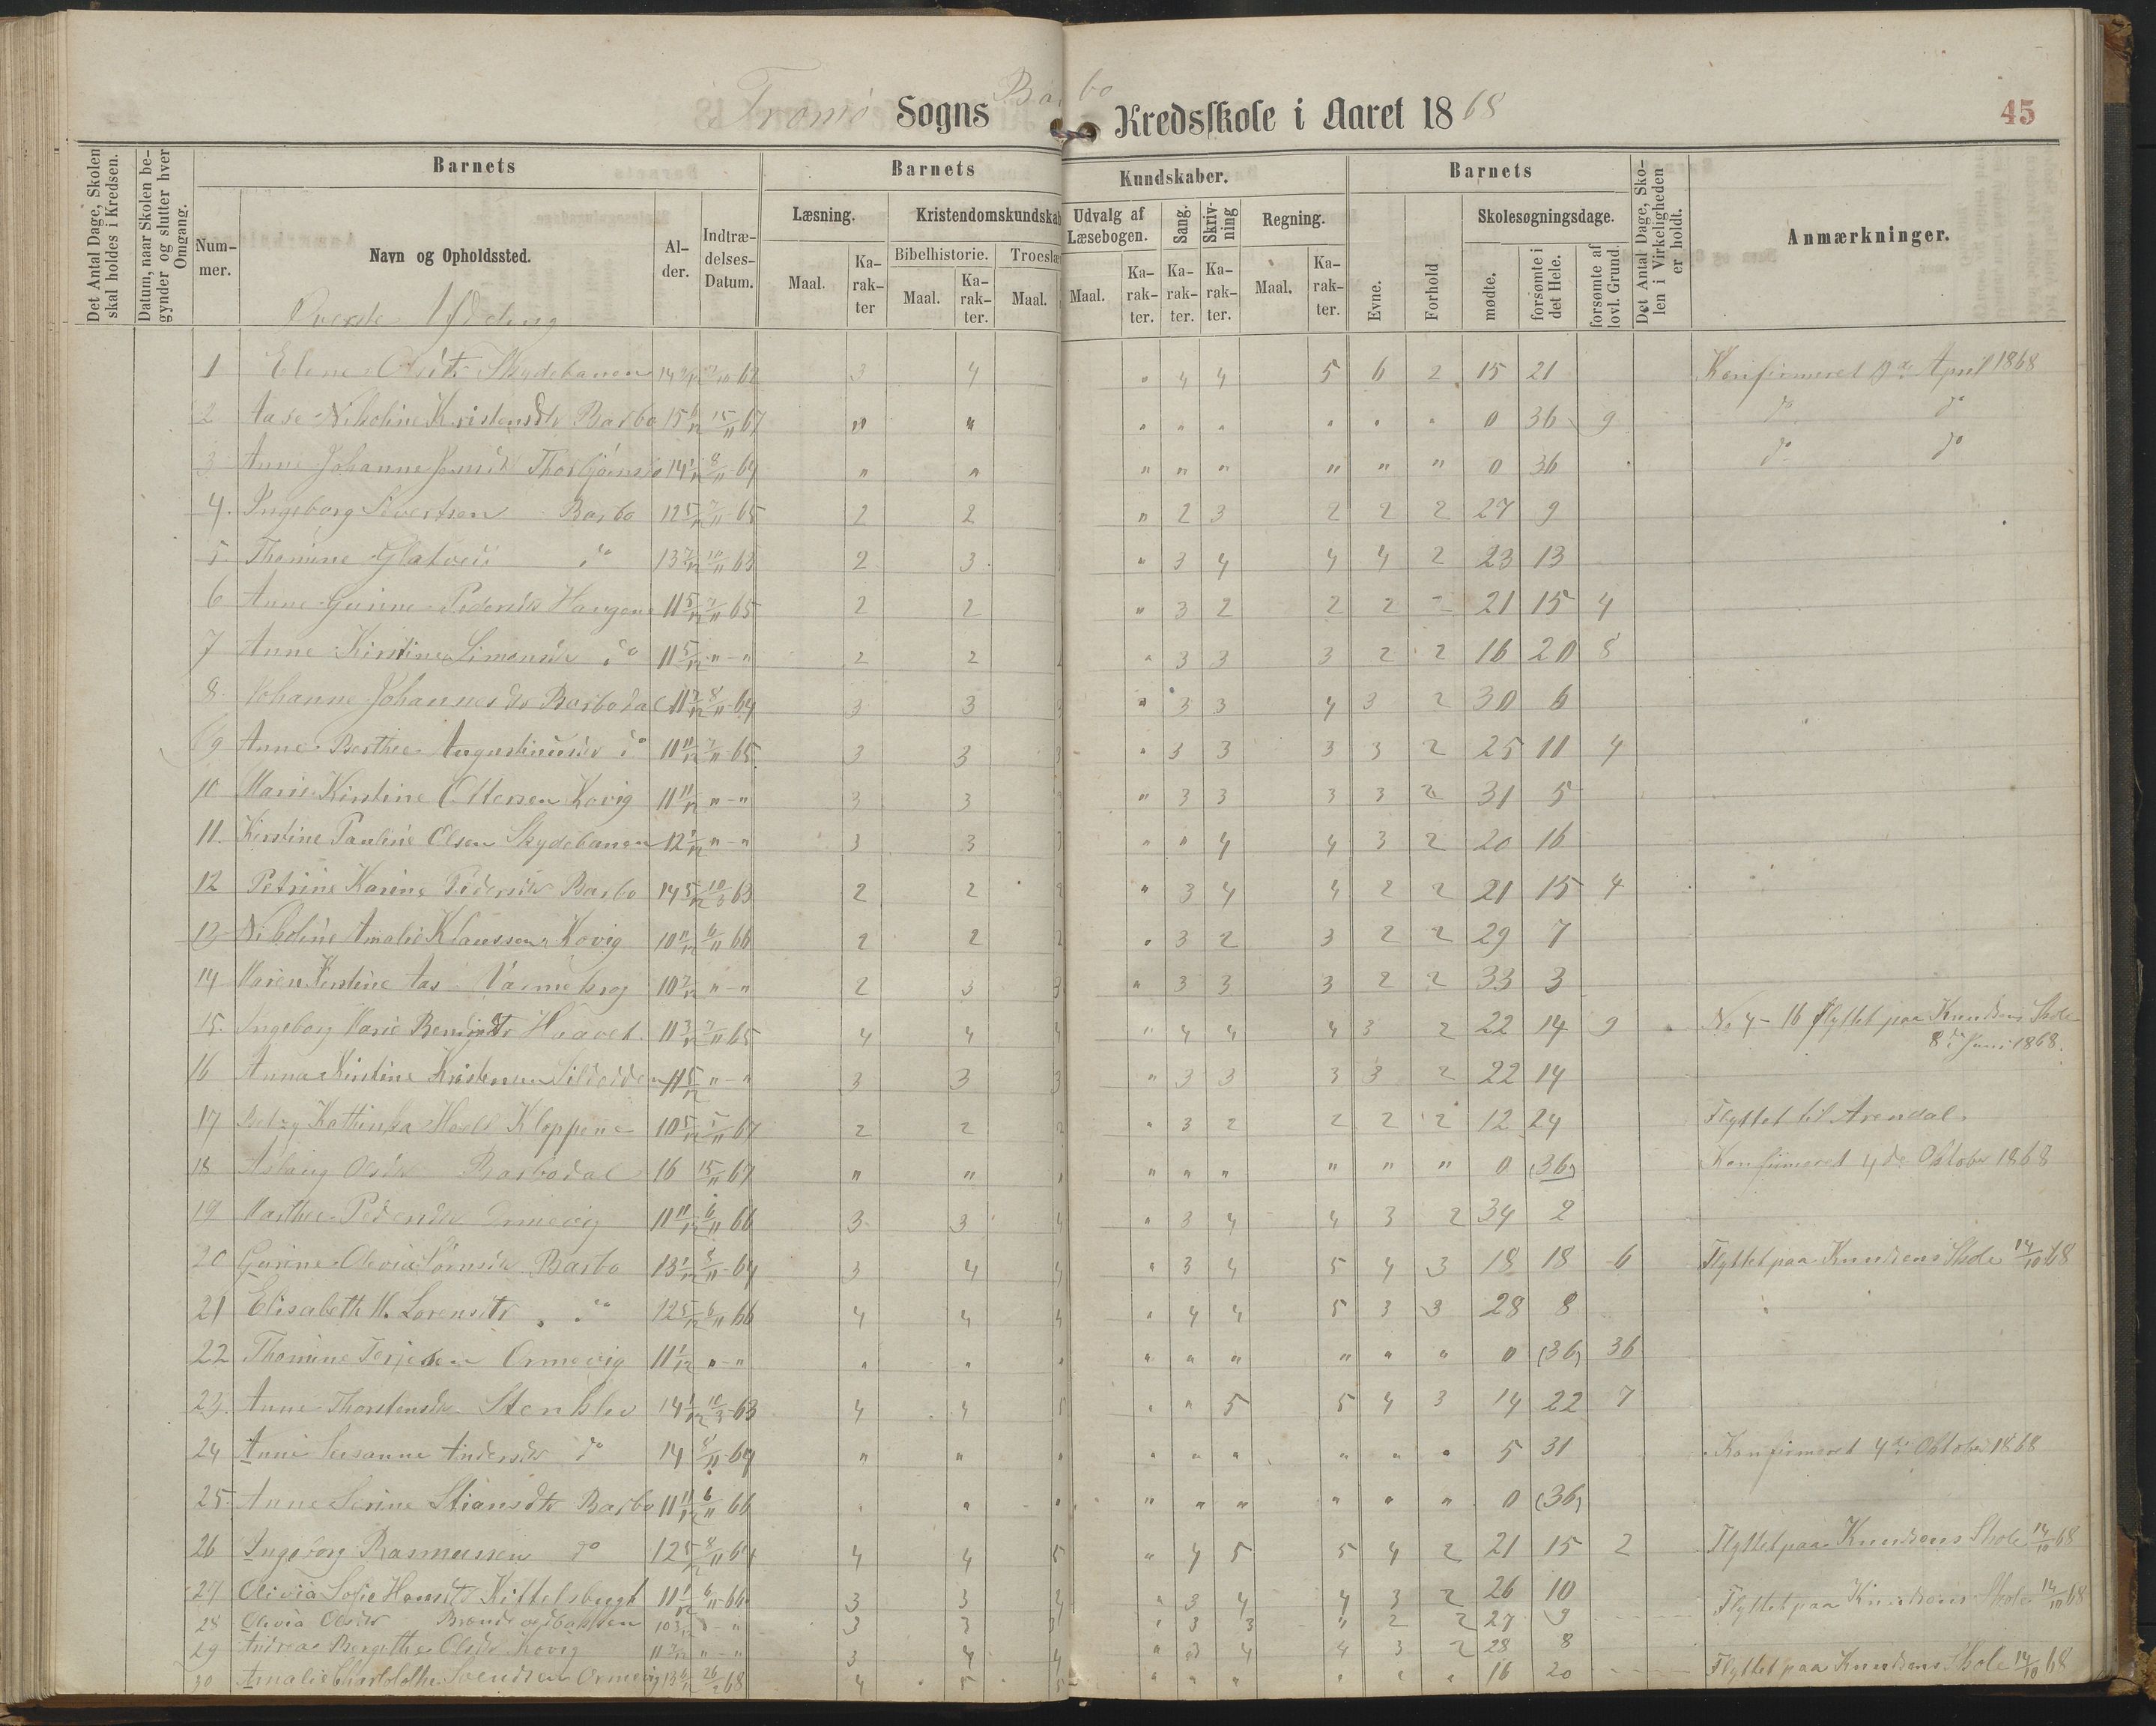 Tromø Sogns Barbo Kredsskole i Aaret 1868
45
Det Antal Dage, Skolen skal holdes i Kredsen.
Datum, naar Skolen begynder og slutter hver Omgang.
Barnets
Nummer.
Navn og Opholdssted.
Alder.
Indtrædelses-Datum.
Barnets Kundskaber.
Læsning.
Maal.
Karakter
Kristendomskundskab
Bibelhistorie.
Maal.
Karakter.
Troeslær
Maal.
Udvalg af Læsebogen.
Maal.
Karakter.
Sang.
Karakter.
Skrivning
Karakter.
Regning.
Maal.
Karakter.
Barnets
Evne.
Forhold
Skolesøgningsdage.
mødte.
forsømte i det Hele.
forsømte af lovl. Grund.
Det Antal Dage, Skolen i Virkeligheden er holdt.
Anmærkninger.
1 Skydebanen 3 4 " 4 4 5 6 2 15 21 Konfirmeret April 1868
2 Aase Nikoline Kristensdtr Barbo 15 6/12 15/11 67 " " " " " " " " 0 36 9 do do
3 Anne Johanne 14 1/12 8/11 64 " " " " " " " " 0 36 do do
4. Ingeborg Sivertsen Barbo 12 5/12 7/11 65 2 2 " 2 3 2 2 2 27 9
5. Thomine do 13 2 3 " 3 4 4 4 2 23 13
6 Anne Gurine Pedersdtr Haugene 11 5/12 7/11 65 2 2 " 3 2 2 2 21 15 4
7 Anne Kirstine Simonsdtr do 11 5/12 " - " 2 2 " 3 3 3 2 2 16 20 8
8. Johanne Johannesdtr Barbodal 11 8/11 64 3 3 " 3 3 4 3 2 30 6
9 Anne Berthe do 11 11/12 7/11 65 3 3 " 3 3 3 3 2 25 11 4
10 Marie Kirstine Ottersen Kovig 11 11/12 " - " 3 3 " 3 3 3 3 2 31 5
11. Kirstine Pauline Olsen Skydebanen 12 1/12 " - " 3 3 " " 4 4 3 2 20 16
12 Petrine Karine Pedersdtr Barbo 14 5/12 10/3 63 2 2 2 " 3 4 4 2 2 21 15 4
13 Nikoline Amalie Klaussen Kovig 10 11/12 6/11 66 2 2 2 " 3 2 3 2 2 29 7
14 Maren Kirstine Aas 10 " - " 2 3 3 " 3 3 3 2 2 33 3
15. Ingeborg Marie 11 3/12 7/11 65 4 4 4 " 4 4 4 3 2 22 14 9 No 4 - 16 flyttet paa Knudsens Skole
8de Juni 1868.
16 Anna Kirstine Kristensen 11 5/12 " - " 3 3 3 " 3 3 3 3 2 22 14
17 Kathinka Kloppene 10 5/12 67 2 2 2 " 3 2 2 2 2 12 24 Flyttet til Arendal.
18 Aslaug Olsdtr Barbodal 16 15/11 67 " " " " " " " " " 0 (36) Konfirmeret 4de Oktober 1868
19 Marthe Pedersdtr Ormevig 11 11/12 6/11 66 3 3 4 " 3 4 4 3 2 34 2
20 Gurine Olevia Barbo 13 1/12 8/11 64 3 4 4 " 3 4 5 4 3 18 18 6 Flyttet paa Knudsens Skole 14/10 68
21 Elisabeth M. Lorensdtr do 12 5/12 6/11 66 4 4 4 " 4 4 5 3 3 28 8
22 Thomine Terjesen Ormevig 11 1/12 " - " " " " " " " " " " 0 (36) 36
23. Anne Thorstensdtr Stenklev 14 1/12 10/3 63 4 4 5 " " 5 5 4 3 14 22 7
24 Anne Susanne Andersdtr do 14 8/11 64 " " " " " " " " " 5 31 Konfirmeret 4de Oktober 1868
25. Anne Serine Stiansdtr Barbo 11 11/12 6/11 66 " " " " " " " " " 0 (36)
26 Ingeborg Rasmussen do 12 5/12 8/11 64 4 4 5 " 4 5 5 4 2 21 15 2 Flyttet paa Knudsens Skole 14/10 68
27 Olivia Sofie Hansdtr 11 1/12 6/11 66 3 3 4 " 3 4 4 3 2 26 10 Flyttet paa Knudsens Skole 14/10 68
28 Olivia Olsdtr 10 3/12 3 3 3 " 3 3 " 2 2 27 9
29 Andrea Bergithe Olsdtr Kovig 11 " - " 3 4 4 " 3 4 4 3 2 28 8
30 Amalie Svendsen Ormevig 13 68 4 5 5 " " " " " " 16 20 Flyttet paa Knudsens Skole 14/10 68